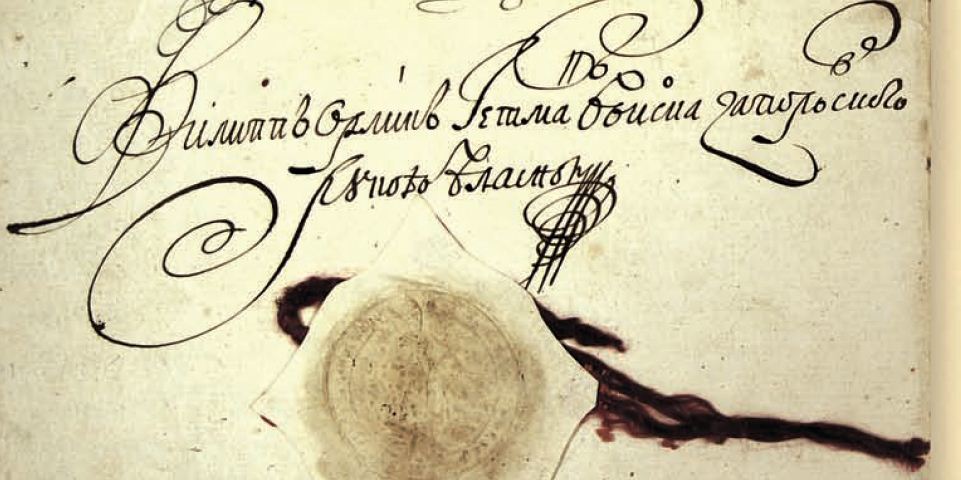 Филиппъ Орликъ Гетма Воиска Запорозского
Рукою Власною